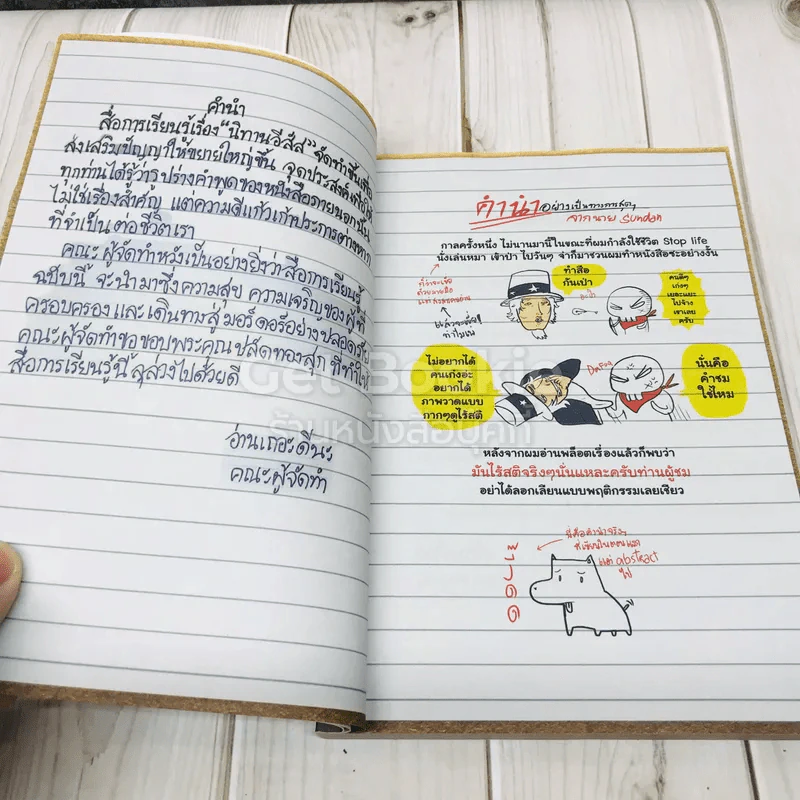 คำนำ
สื่อการเรียนรู้เรื่อง "นิทานอีสัส" จัดทำขึ้นเพื่อ
ส่งเสริมปัญญาให้ขยายใหญ่ขึ้น จุดประสงค์เพื่อให้
ทุกท่านได้รู้ว่ารูปร่างคำพูดของหนังสือภายนอกนั้น
ไม่ใช่เรื่องสำคัญ แต่ความดีแก้วเก้าประการต่างหาก
ที่จำเป็นต่อชีวิตเรา
คณะผู้จัดทำหวังเป็นอย่างยิ่งว่าสื่อการเรียนรู้
ฉบับนี้ จะนำมาซึ่งความสุข ความเจริญของผู้ที่
ครอบครอง และเดินทางสู่มอร์ดอร์อย่างปลอดภัย
คณะผู้จัดทำขอขอบพระคุณปลัดทองสุก ที่ทำให้
สื่อการเรียนรู้นี้ลุล่วงไปด้วยดี
อ่านเถอะดีนะ
คณะผู้จัดทำ
คำนำอย่างเป็นทางการสุดๆ
จากนาย Sundan
กาลครั้งหนึ่ง ไม่นานมานี้ในขณะที่ผมกำลังใช้ชีวิต Stop life
นั่งเล่นหมา เข้าป่า ไปวันๆ จ่าก็มาชวนผมทำหนังสือซะอย่างงั้น
ทำสือ
กันเป่า
คนดีๆ
เก่งๆ
เยอะแยะ
ไปจ้าง
เขาเลย
ครับ
ไม่อยากได้
คนเก่งอ่ะ
อยากได้
ภาพวาดแบบ
กากๆดูไร้สติ
นั่นคือ
คำชม
ใช่ไหม
Get Bookie
ร้านหนังสือบุคกี้
หลังจากผมอ่านพล็อตเรื่องแล้วก็พบว่า
มันไร้สติจริงๆนั่นแหละครับท่านผู้ชม
อย่าได้ลอกเลียนแบบพฤติกรรมเลยเชียว
นี่คือคำนำจริงๆ
ที่เขียนในตอนแรก
แต่ abstract
ไป